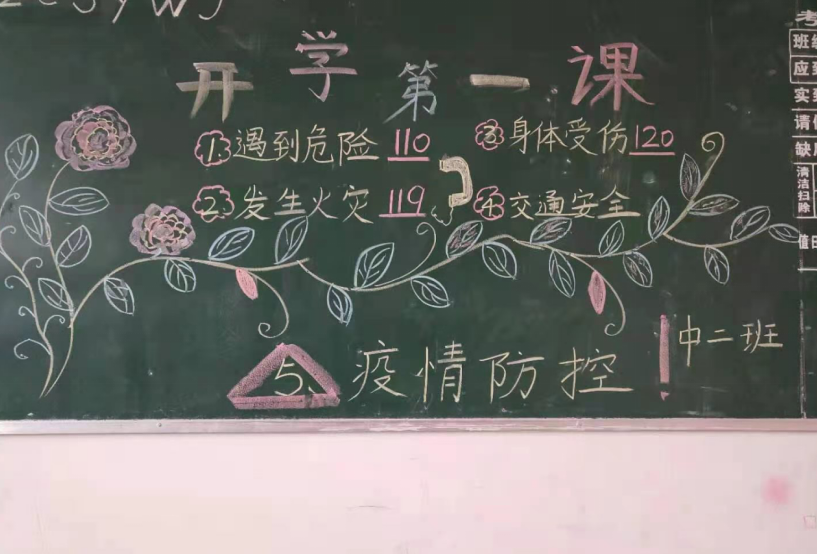 开学第一课
1. 遇到危险 110
2. 发生火灾 119
3 身体受伤 120
4 交通安全
5、疫情防控
中二班
考
班级
应到
实到
请假
缺席
清洁扫除
值日